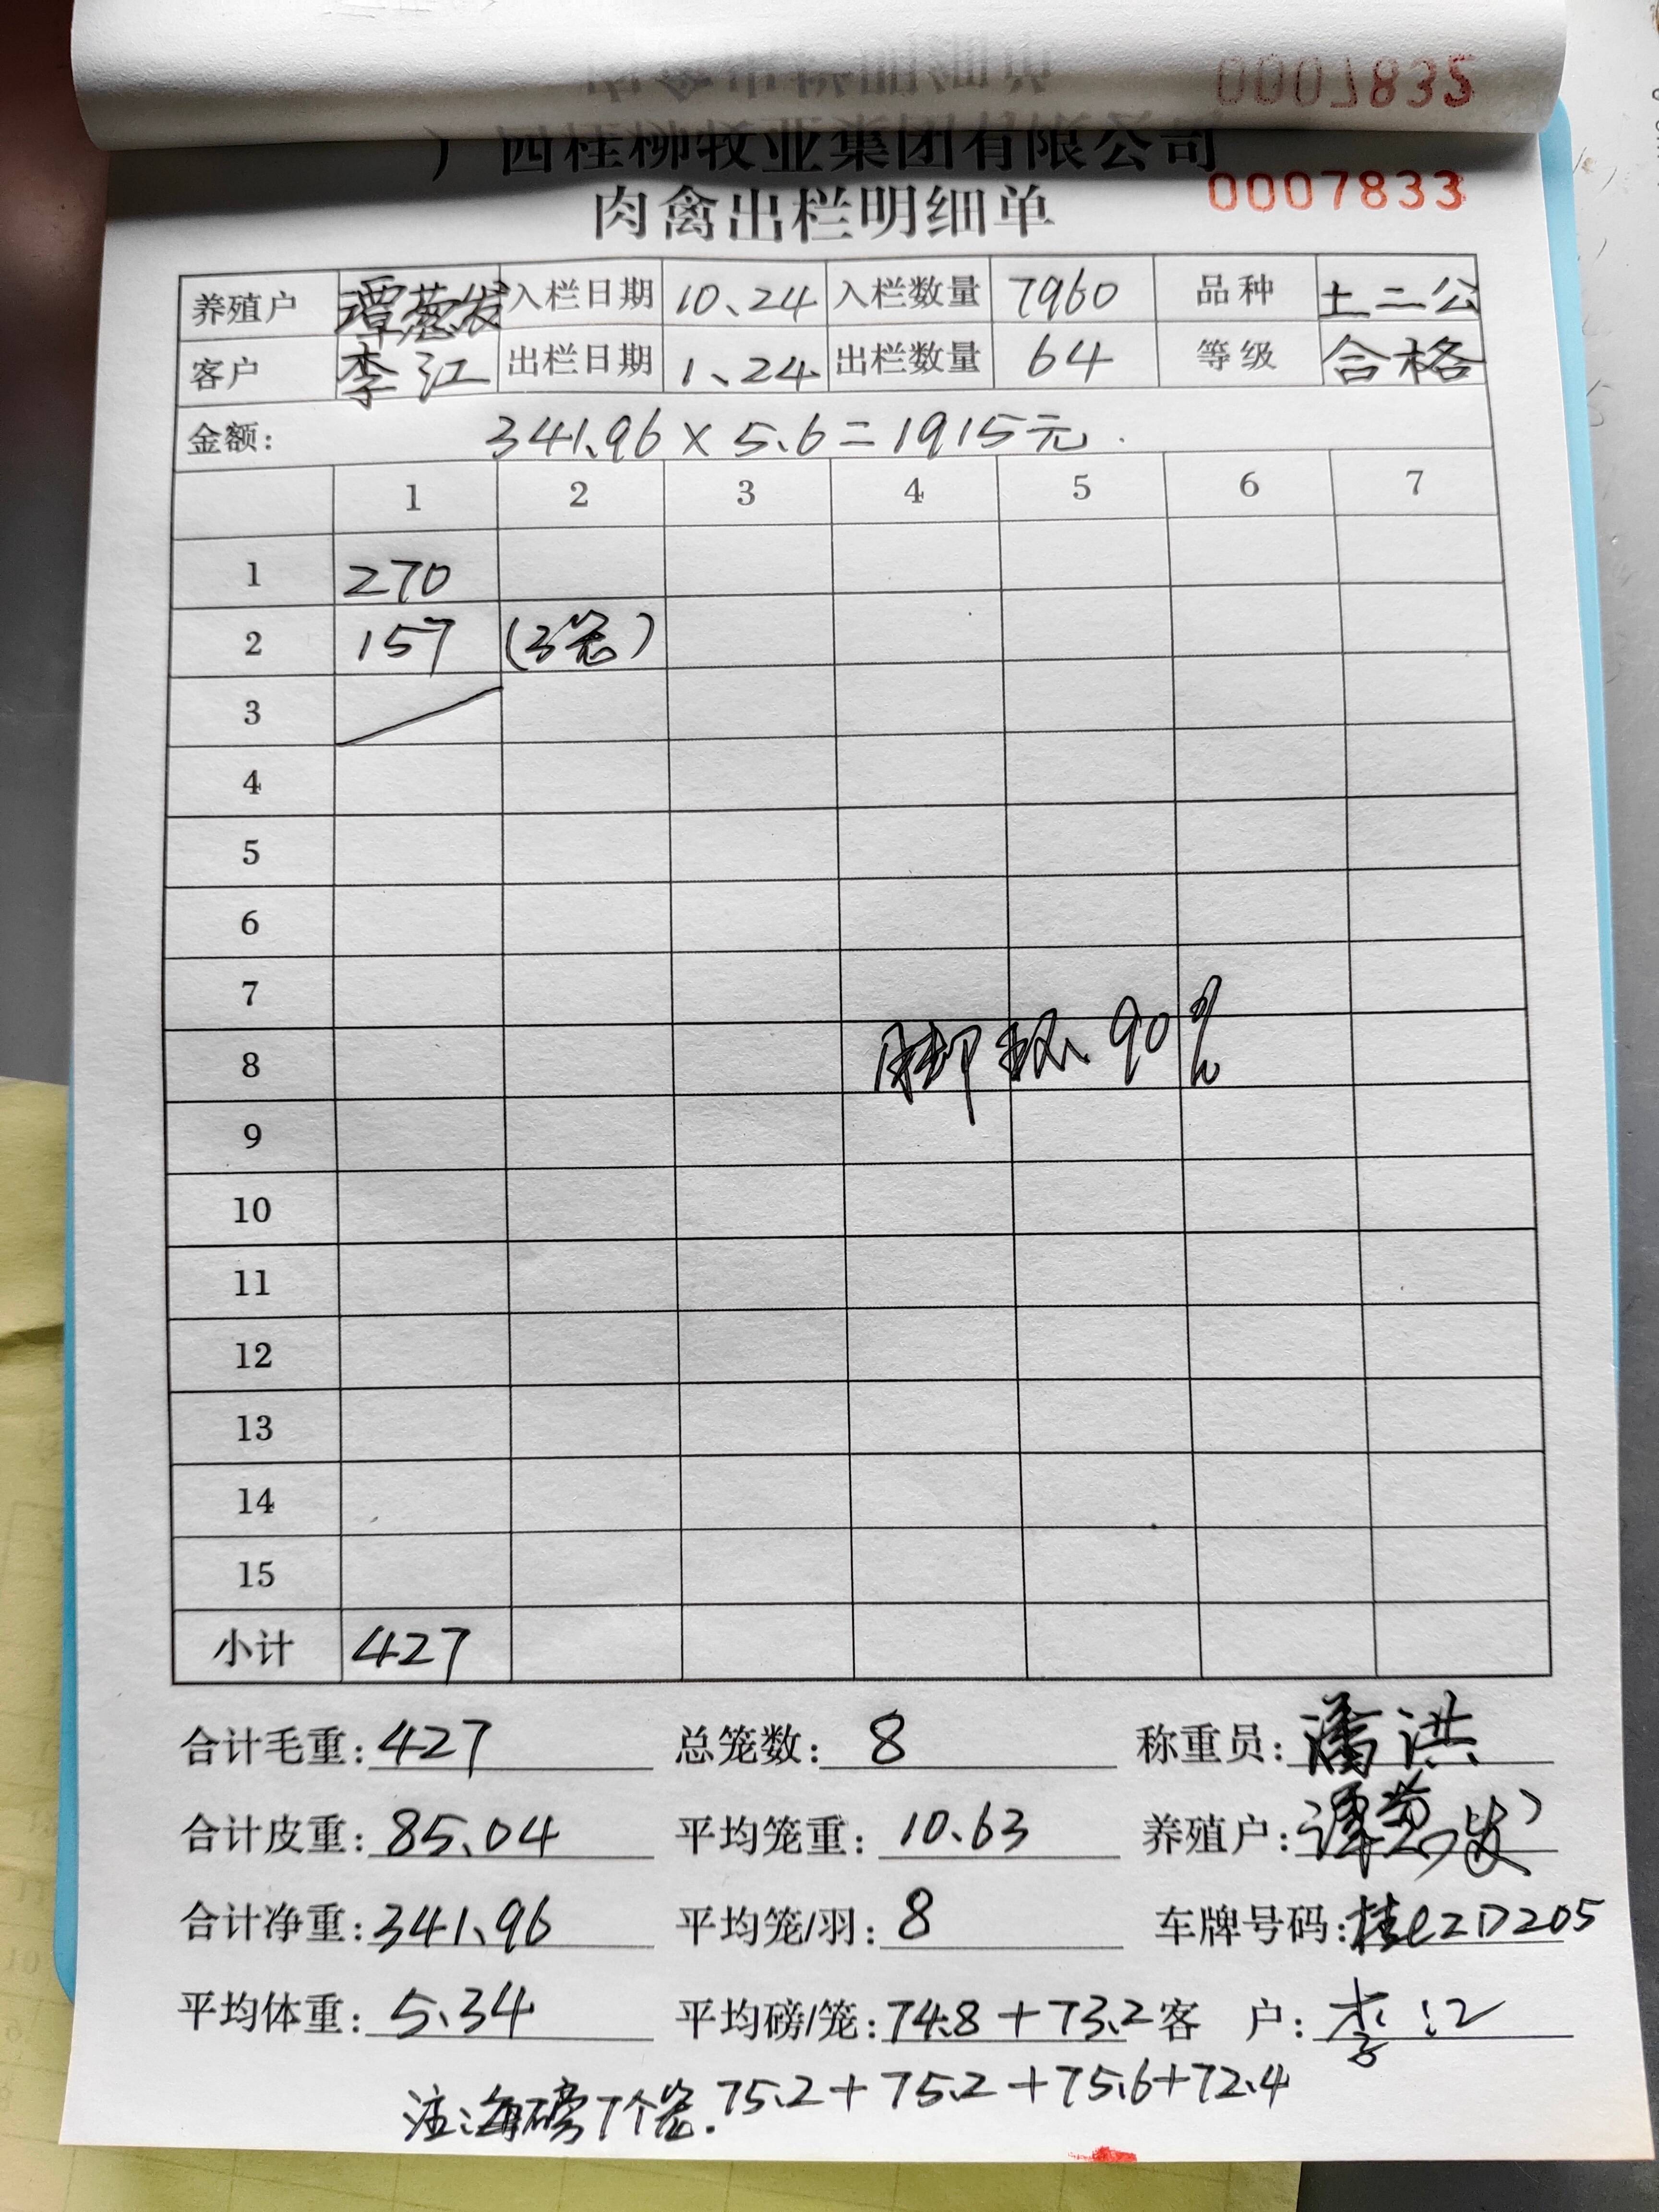 0007832
广西桂柳牧业集团有限公司
肉禽出栏明细单 0007833
养殖户 谭葱发 入栏日期 10、24 入栏数量 7960 品种 土二公
客户 李江 出栏日期 1、24 出栏数量 64 等级 合格
金额： 341.96×5.6=1915元.
1 2 3 4 5 6 7
1 270
2 157 (3笼)
3
4
5
6
7
8 脚环90%
9
10
11
12
13
14
15
小计 427
合计毛重：427 总笼数：8 称重员：潘洪
合计皮重：85.04 平均笼重：10.63 养殖户：谭葱发
合计净重：341.96 平均笼/羽：8 车牌号码：桂CZD205
平均体重：5.34 平均磅/笼：74.8+73.2 客 户：李江
注：每磅5个笼. 75.2+75.2+75.6+72.4